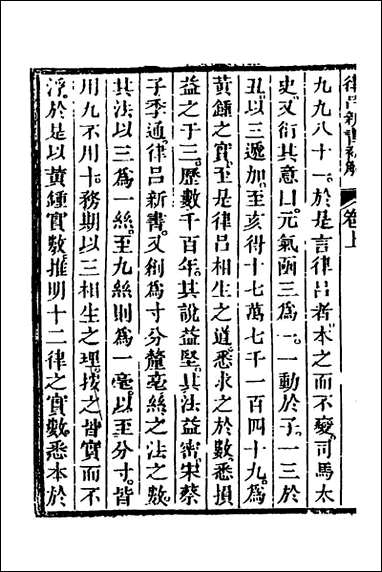 律呂新書初解 卷上
九九八十一。於是言律呂者。本之而不變。司馬太
史。又衍其意曰。元氣函三爲一。一動於子。一三於
丑。以三遞加。至亥得十七萬七千一百四十九。爲
黃鍾之實。至是律呂相生之道。悉求之於數。悉損
益之于三。歷數千百年。其說益堅。其法益密。宋蔡
子季通。律呂新書。又衍爲寸分釐毫絲之法之數。
其法以三爲一絲。至九絲則爲一毫。以至分寸。皆
用九不用十。務期以三相生之理。按之皆實而不
浮。於是以黃鍾實數。推明十二律之實數。悉本於